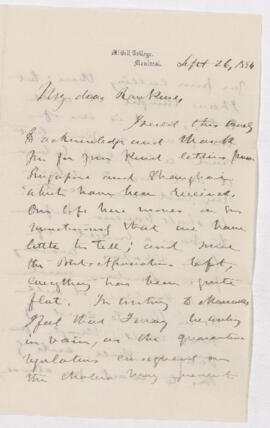 McGill College,
Montreal.
Sept 26, 1884
My dear Rankine,
I send this merely
to acknowledge and thank
you for your kind letters from
Singapore and Shanghai,
which have been received.
Our life here moves on so
that we have
little to tell; and since
the British Association left,
everything has been quite
flat. In writing to
I feel that I may be writing
in vain, as the quarantine
regulations consequent on
the cholera may prevent